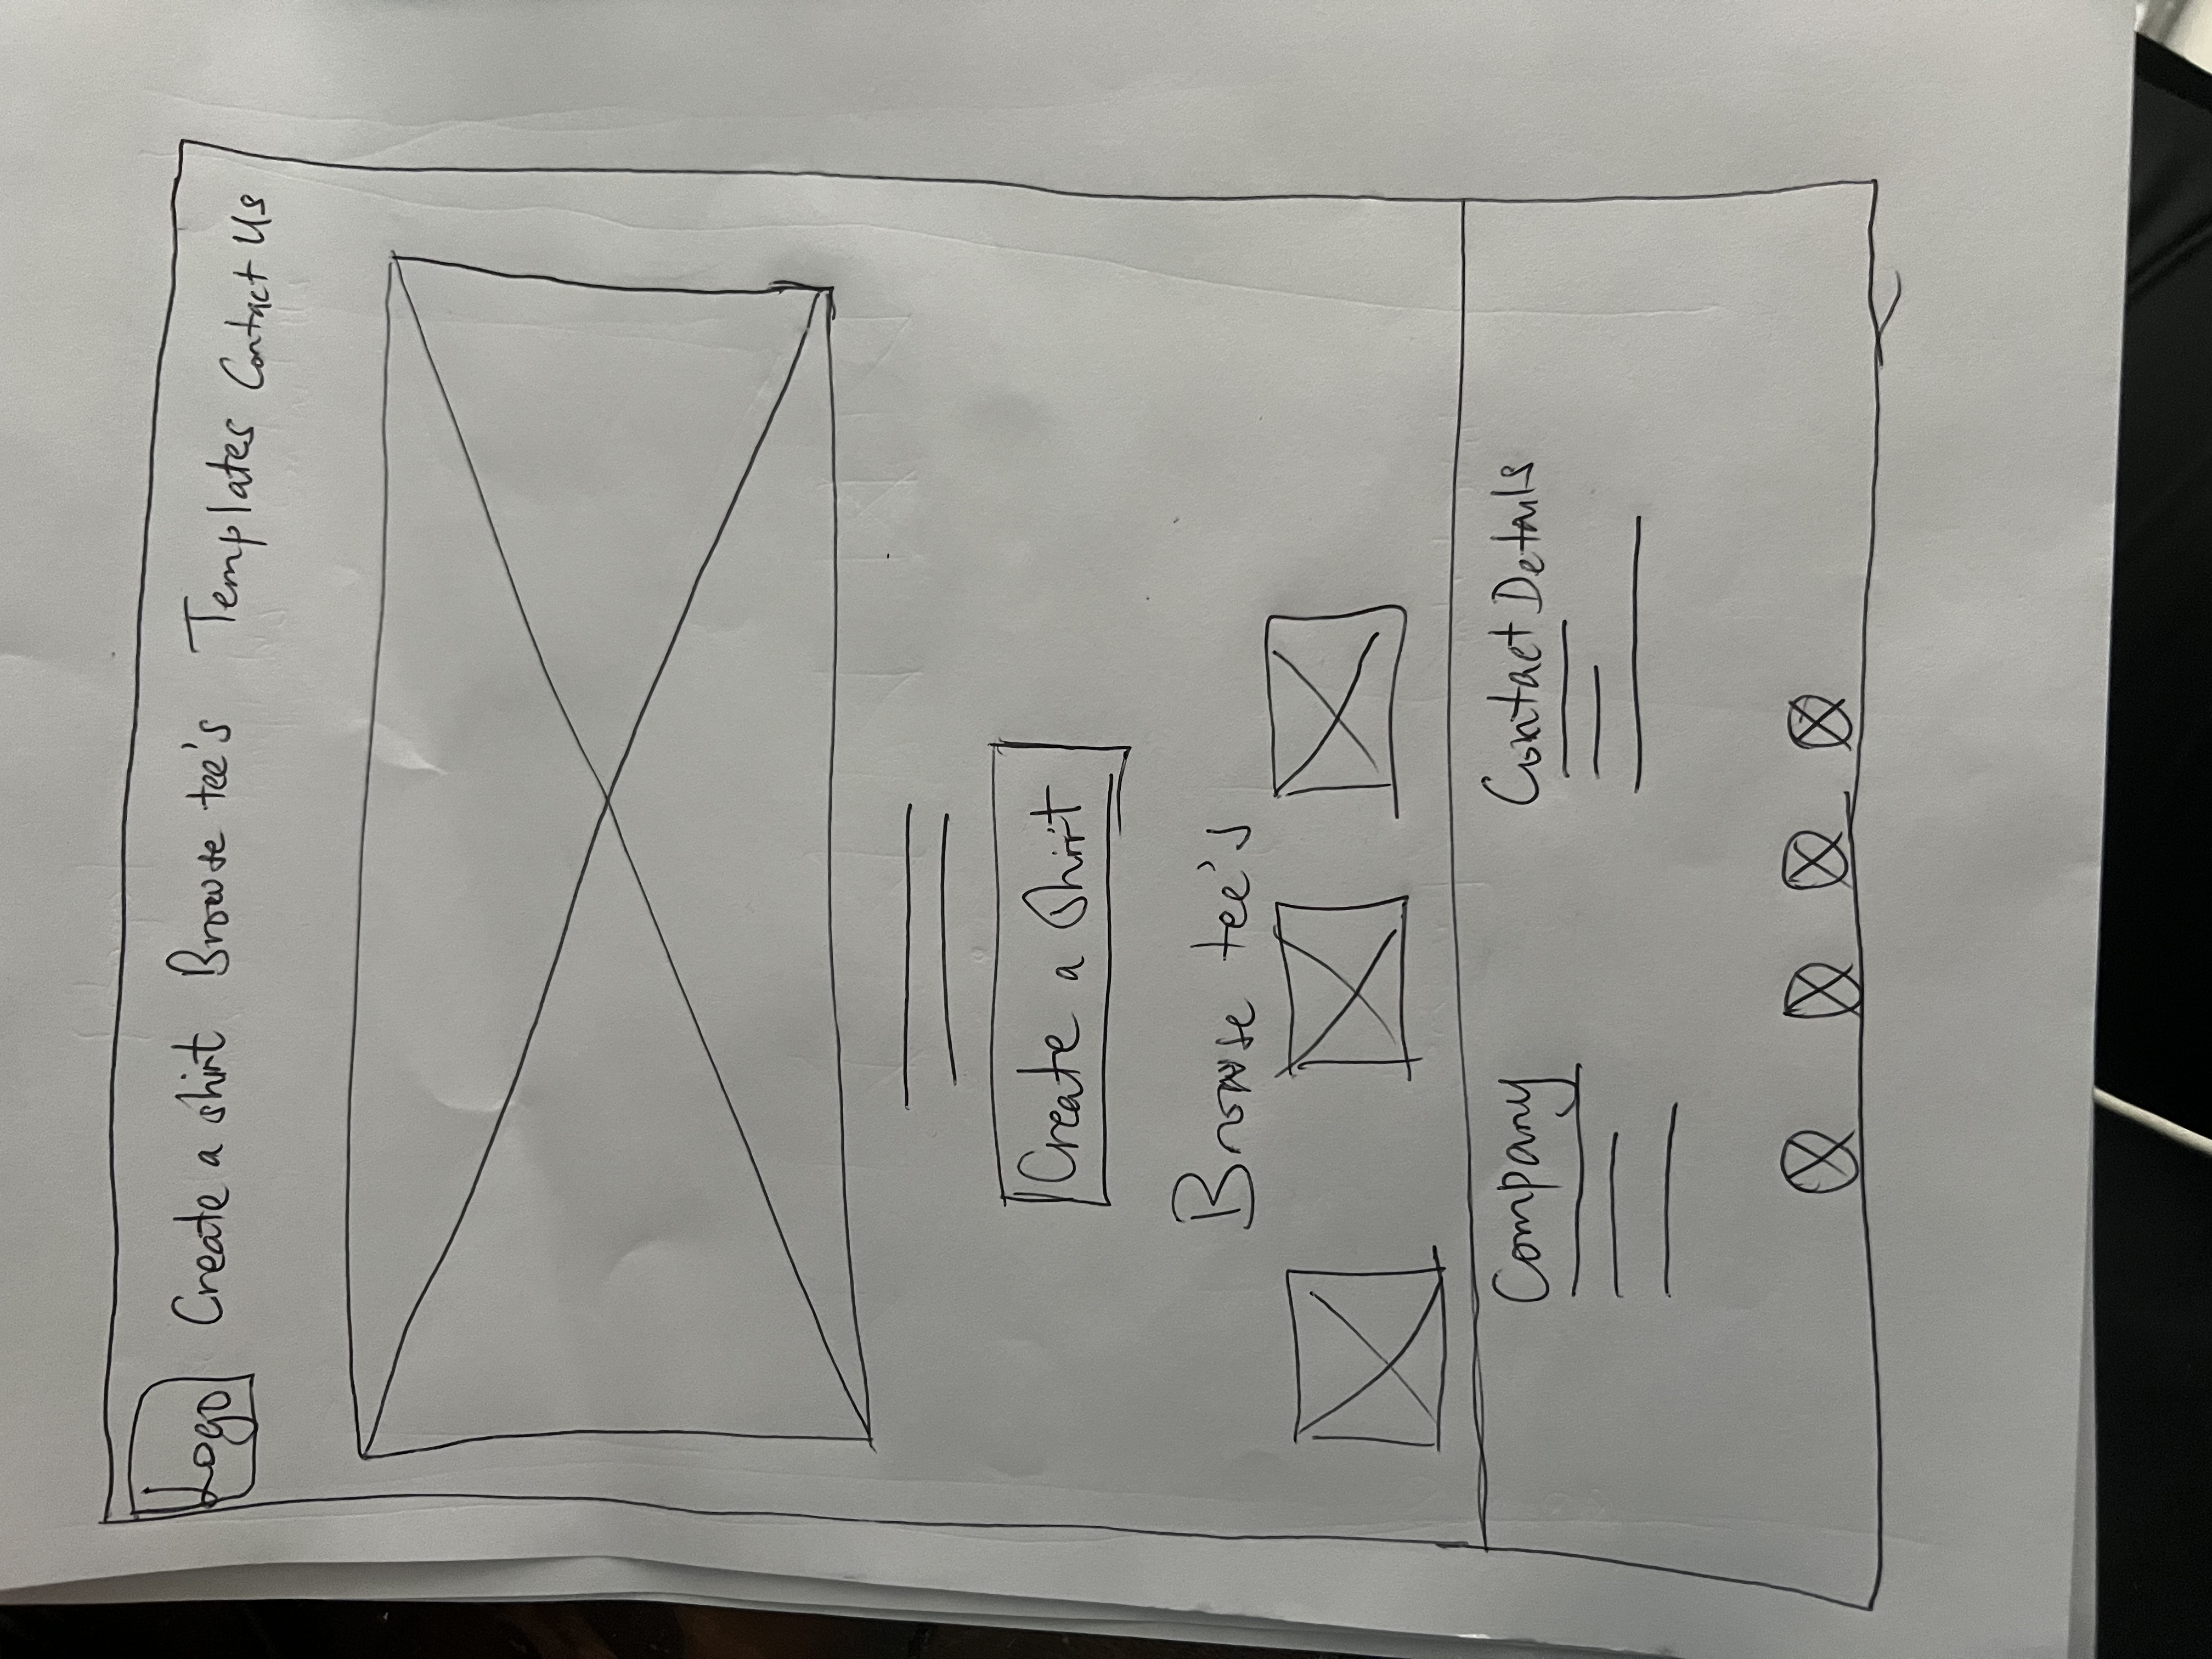 Logo Create a shirt Browse tee's Templates Contact Us
Create a Shirt
Browse tee's
Company Contact Details